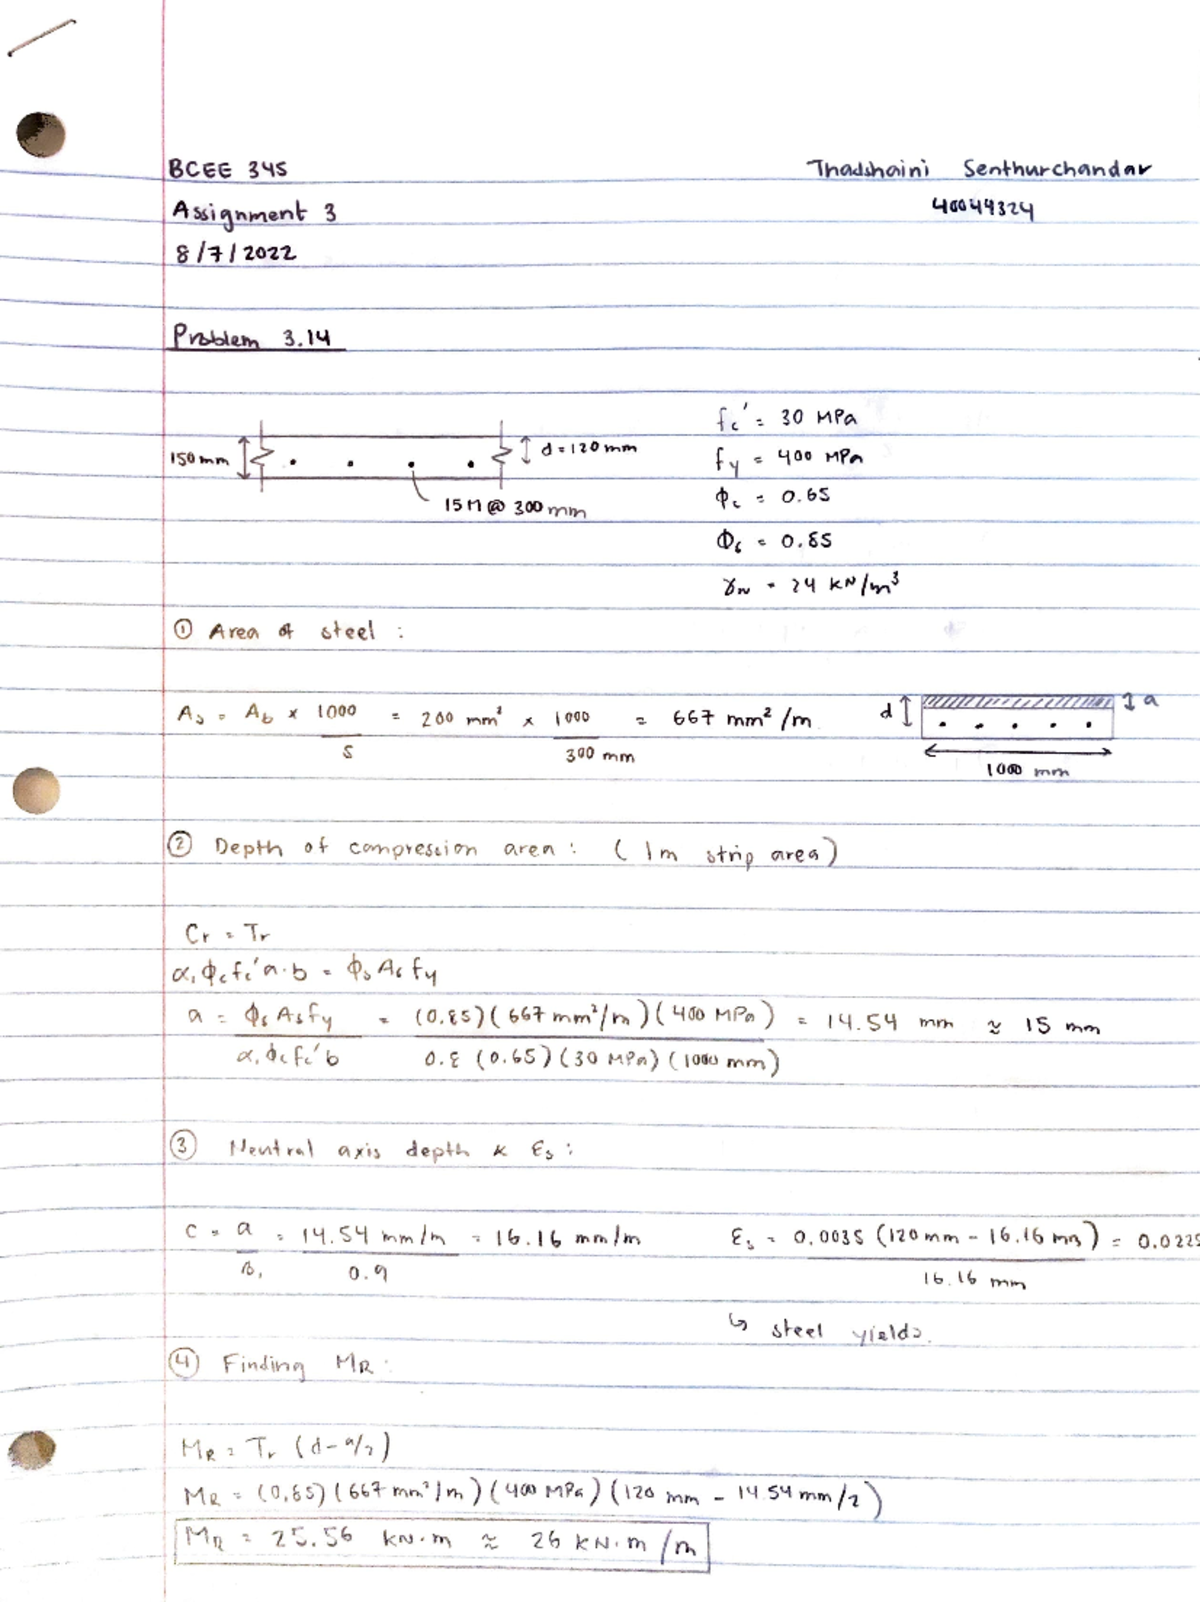 BCEE 345
Thadshaini Senthurchandar
Assignment 3
40044324
8/7/2022
Problem 3.14
150mm
d = 120mm
15M @ 300mm
fc' = 30 MPa
fy = 400 MPa
ϕc = 0.65
ϕs = 0.85
γw = 24 kN/m³
① Area of steel :
As = Ab × 1000/S = 200 mm² × 1000/300 mm = 667 mm²/m
d
a
1000 mm
② Depth of compression area : (1m strip area)
Cr = Tr
α₁ϕcfc'a·b = ϕsAsfy
a = ϕsAsfy/α₁ϕcfc'b = (0.85)(667mm²/m)(400 MPa)/0.8(0.65)(30 MPa)(1000 mm) = 14.54 mm ≈ 15 mm
③ Neutral axis depth & εs :
c = a/β₁ = 14.54 mm/m/0.9 = 16.16 mm/m
εs = 0.0035 (120mm - 16.16mm)/16.16 mm = 0.0225
↳ steel yields.
④ Finding MR :
MR = Tr (d - a/2)
MR = (0.85)(667mm²/m)(400 MPa)(120 mm - 14.54mm/2)
MR = 25.56 kN·m ≈ 26 kN·m/m